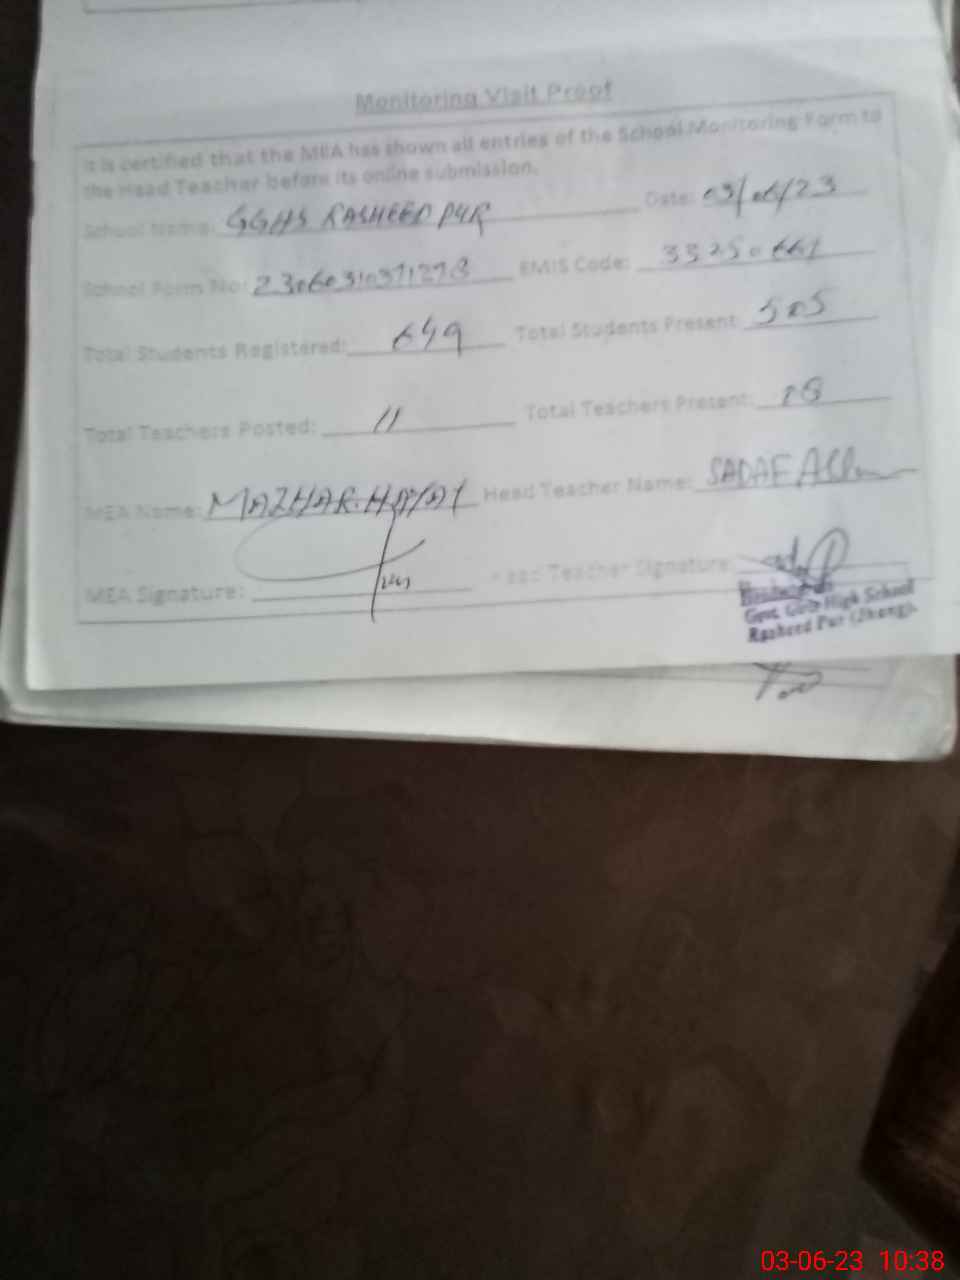 Monitoring Visit Proof
It is certified that the MEA has shown all entries of the School Monitoring Form to
the Head Teacher before its online submission.
School Name: GGHS RASHEED PUR Date: 03/06/23
School Form No: EMIS Code:
Total Students Registered: 649 Total Students Present: 505
Total Teachers Posted: 11 Total Teachers Present:
MEA Name: MAZHAR HAYAT Head Teacher Name: SADAF
MEA Signature: Head Teacher Signature:
Govt. Girls High School
Rasheed Pur (Jhang).
03-06-23 10:38